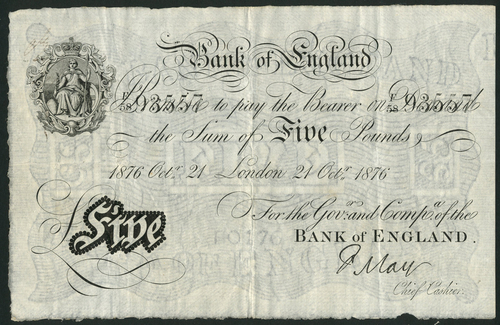 Bank of England
I Promise to pay the Bearer on Demand
the Sum of Five Pounds
1876 Octr. 21 London 21 Octr. 1876
For the Govr. and Compa. of the
BANK of ENGLAND.
Five
F May
Chief Cashier.